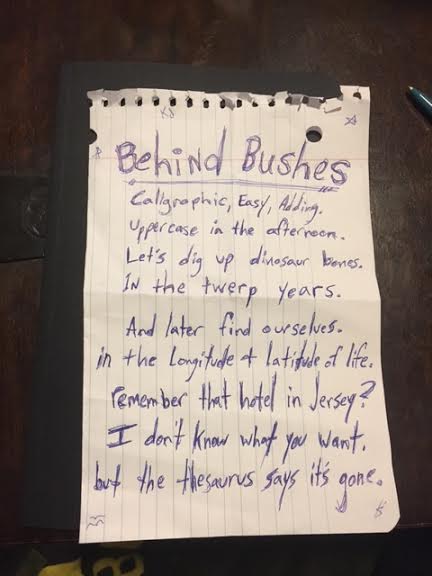 Behind Bushes
Callgraphic, Easy, Adding.
Uppercase in the afternoon.
Let's dig up dinosaur bones.
IN the twerp years.
And later find ourselves.
in the Longitude & latitude of life.
remember that hotel in Jersey?
I don't know what you want.
but the thesaurus says it's gone.